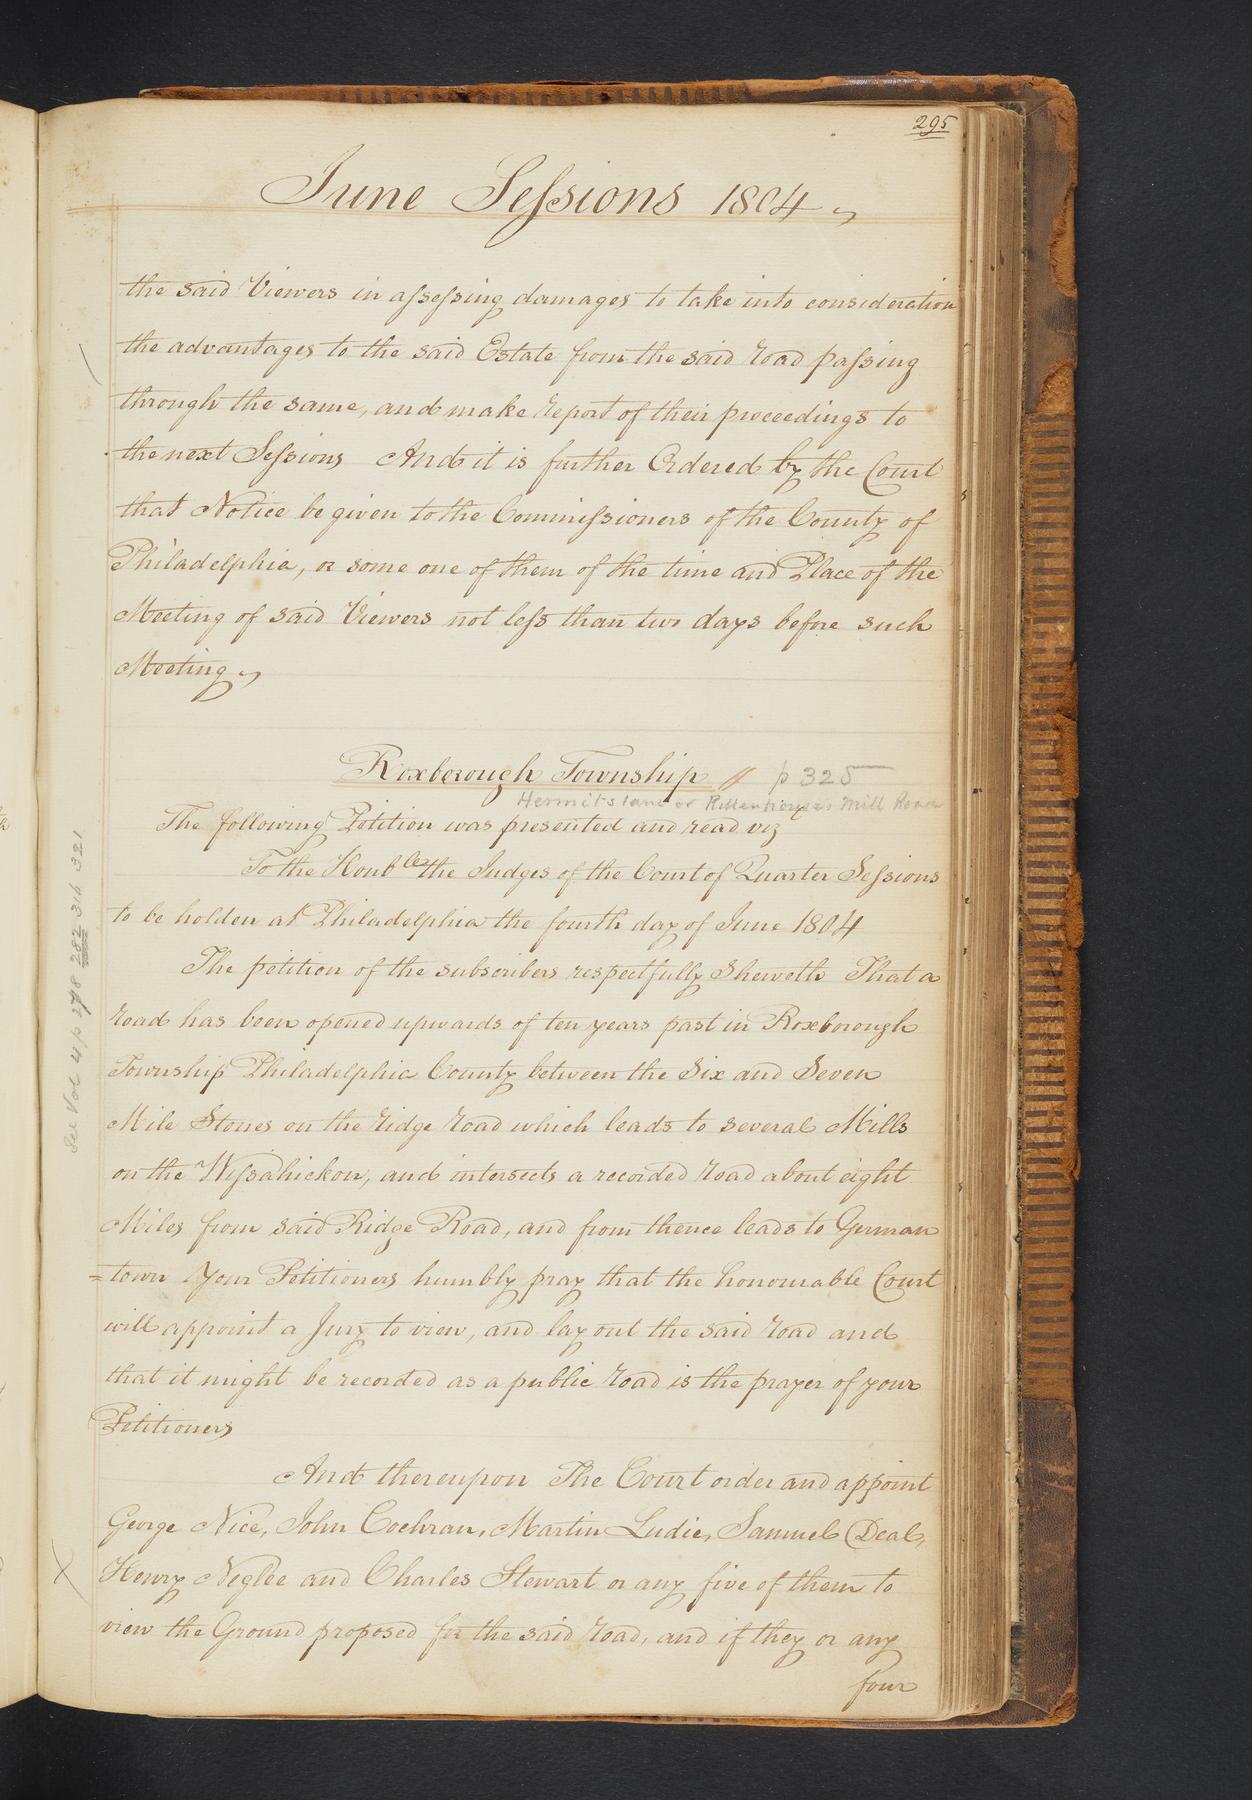 295
June Sessions 1804
the said Viewers in assessing damages to take into consideration
the advantages to the said Estate from the said road passing
through the same, and make report of their proceedings to
the next Sessions And it is further Ordered by the Court
that Notice be given to the Commissioners of the County of
Philadelphia, or some one of them of the time and Place of the
Meeting of said Viewers not less than two days before such
Meeting
Roxborough Township // p 325
Hermits lane or Rittenhouses Mill Road
The following Petition was presented and read viz
To the Honbles the Judges of the Court of Quarter Sessions
to be holden at Philadelphia the fourth day of June 1804
The petition of the subscribers respectfully Sheweth That a
road has been opened upwards of ten years past in Roxborough
Township Philadelphia County between the Six and Seven
Mile Stones on the ridge road which leads to several Mills
on the Wissahickon, and intersects a recorded road about eight
Miles from said Ridge Road, and from thence leads to German
=town Your Petitioners humbly pray that the honourable Court
will appoint a Jury to view, and lay out the said road and
that it might be recorded as a public road is the prayer of your
Petitioners
And thereupon The Court order and appoint
George Nice, John Cochran, Martin Ludie, Samuel Deal,
Henry Neglee and Charles Stewart or any five of them to
view the Ground proposed for the said road, and if they or any
four
See Vol 4 p 278 282 314 321